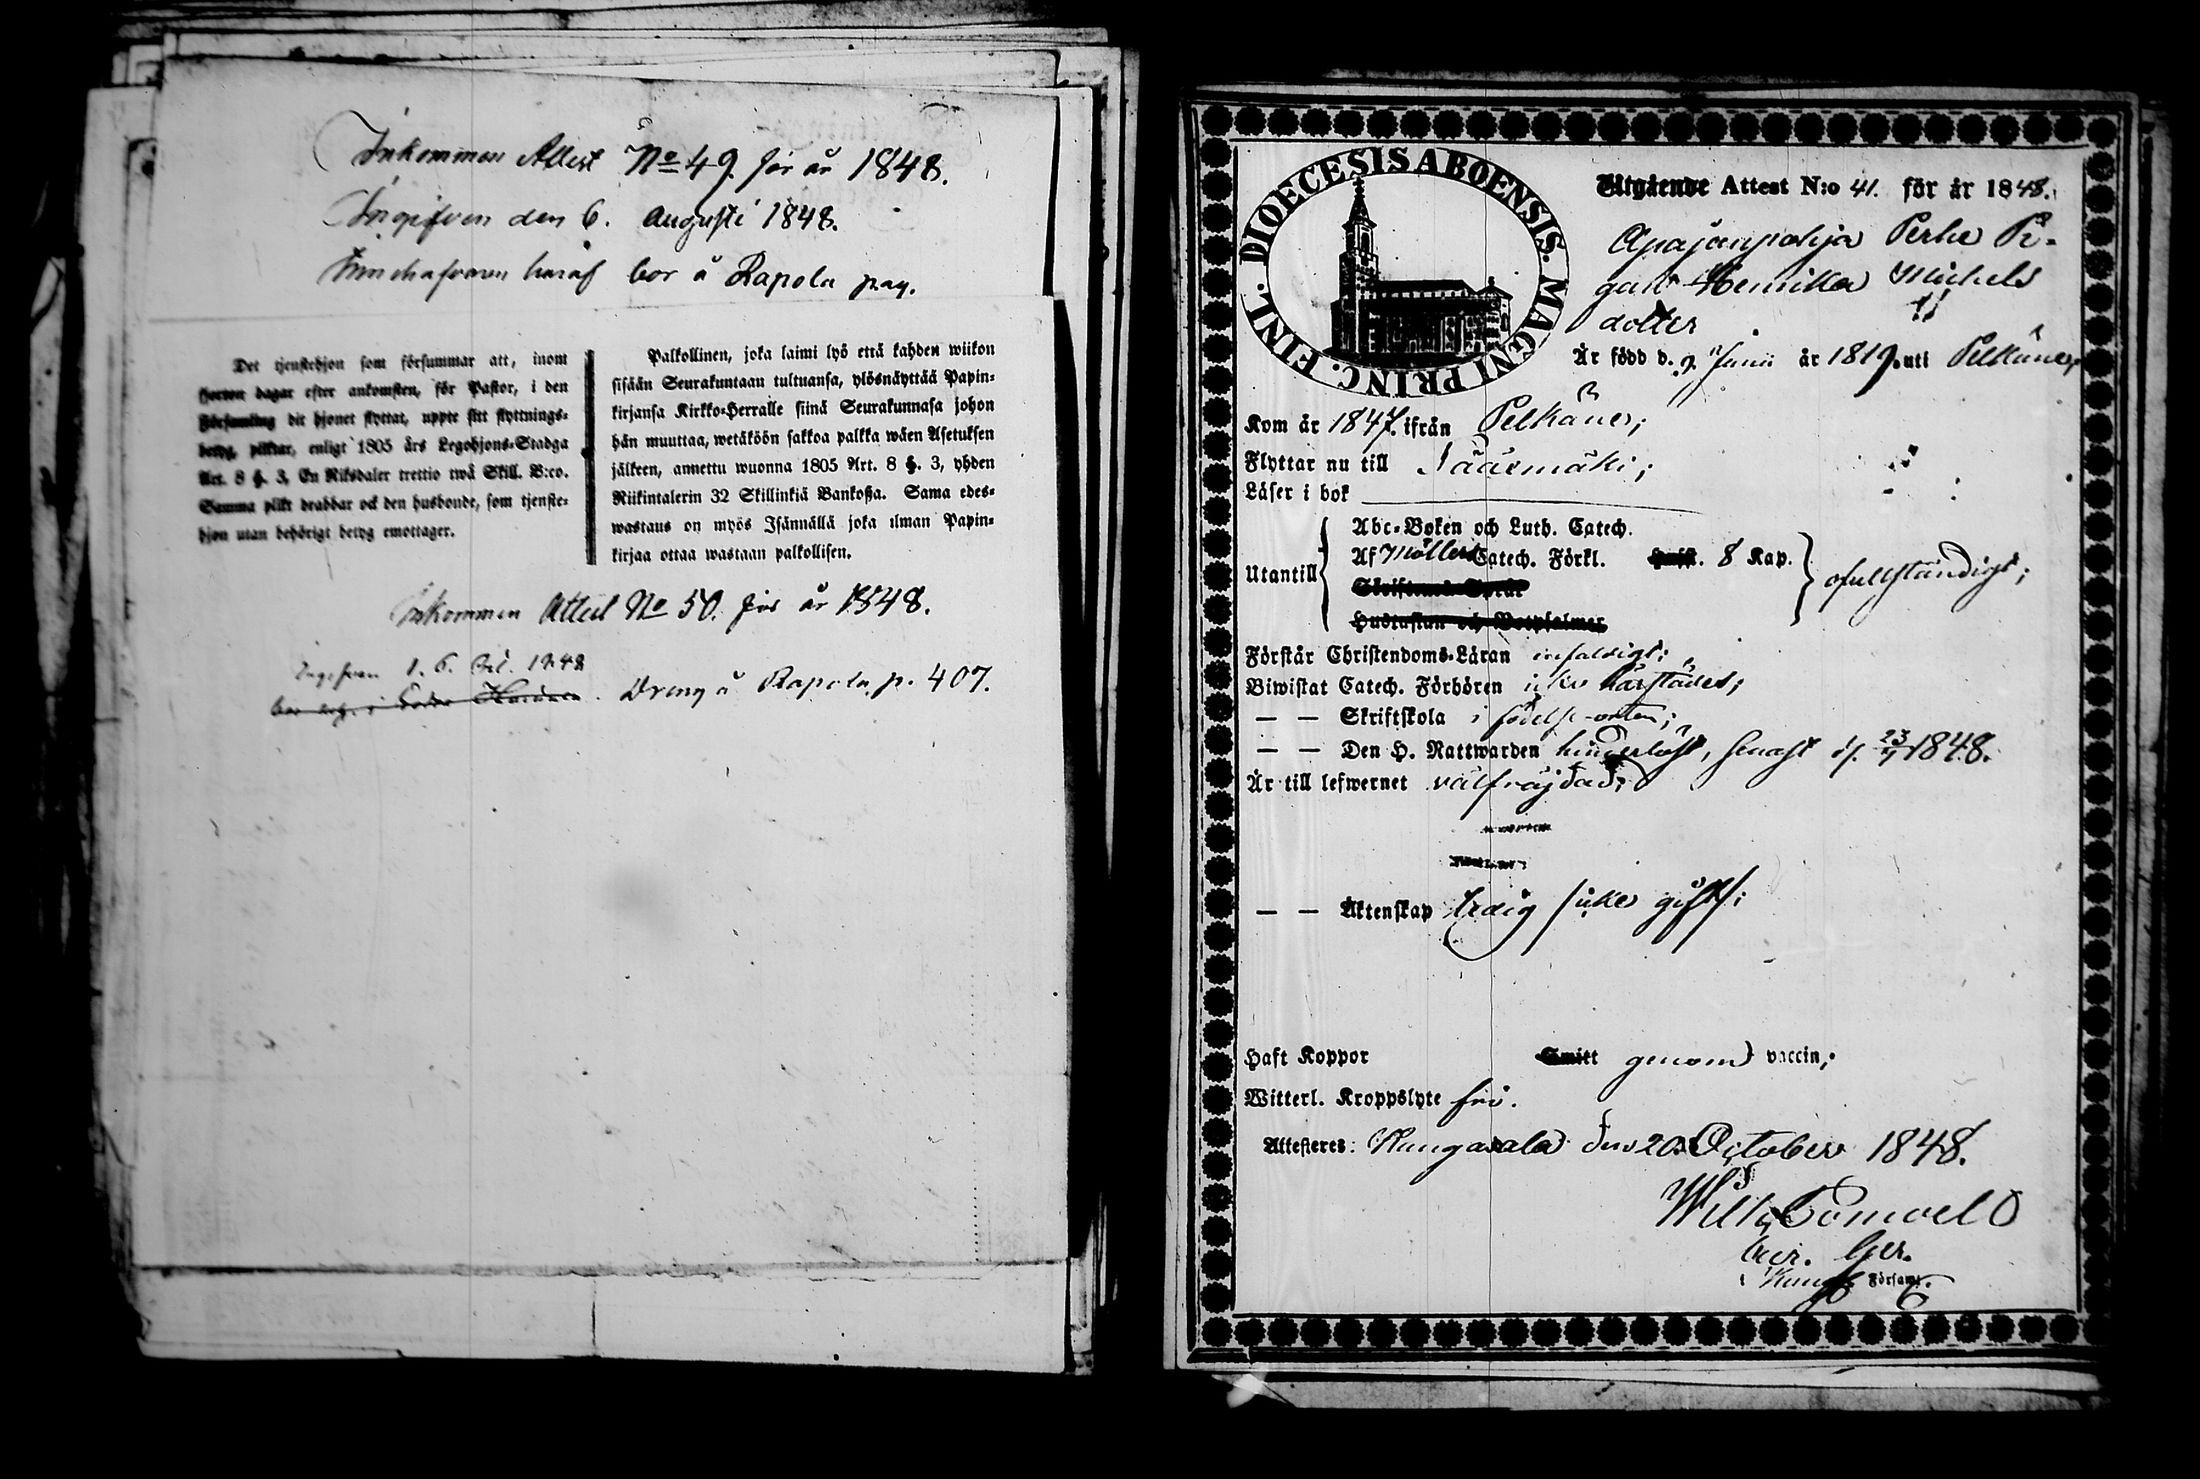 Inkommen Attest No 49. för år 1848.
Ingifven den 6. Augusti 1848.
Innehafvaren häraf bor å Rapola pag.
Det tjenstehjon som försummar att, inom
fjorton dagar efter ankomsten, för Pastor, i den
Församling dit hjonet flyttat, uppte sitt flyttnings-
betyg, pliktar, enligt 1805 års Legohjons-Stadga
Art. 8 §. 3, En Riksdaler trettio twå Skill. B:co.
Samma plikt drabbar ock den husbonde, som tjenste-
hjon utan behörigt betyg emottager.
Palkollinen, joka laimi lyö että kahden wiikon
sisään Seurakuntaan tultuansa, ylösnäyttää Papin-
kirjansa Kirkko-Herralle siinä Seurakunnasa johon
hän muuttaa, wetäköön sakkoa palkka wäen Asetuksen
jälkeen, annettu wuonna 1805 Art. 8 §. 3, yhden
Riikintalerin 32 Skillinkiä Bankossa. Sama edes-
wastaus on myös Isännällä joka ilman Papin-
kirjaa ottaa wastaan palkollisen.
Inkommen Attest No 50. för år 1848.
Ingifven d. 6. 1848
Dräng å Rapola p. 407.
DIOECESIS ABOENSIS. MAGNI PRINC. FINL.
Utgående Attest N:o 41. för år 1848.
Apajanpohja
Henrika Michels
dotter
Är född d. 9 Junii år 1819. uti Pelkäne,
Kom år 1847. ifrån Pelkäne;
Flyttar nu till Sääsmäki;
Läser i bok
Abc-Boken och Luth. Catech.
Utantill Af Möllers Catech. Förkl. 8 Kap. ofullständigt;
Skriftenes Språk
Hustaflan och Botpsalmer
Förstår Christendoms-Läran enfaldigt;
Biwistat Catech. Förhören icke härstädes;
— — Skriftskola i födelseorten;
— — Den H. Nattwarden hinderlöst, senast d. 23/7 1848.
Är till lefwernet välfräjdad;
— — Äktenskap ledig icke gift;
Haft Koppor Smitt genom vaccin;
Witterl. Kroppslyte fri.
Attesteras: Kangasala den 20 October 1848.
Församl.